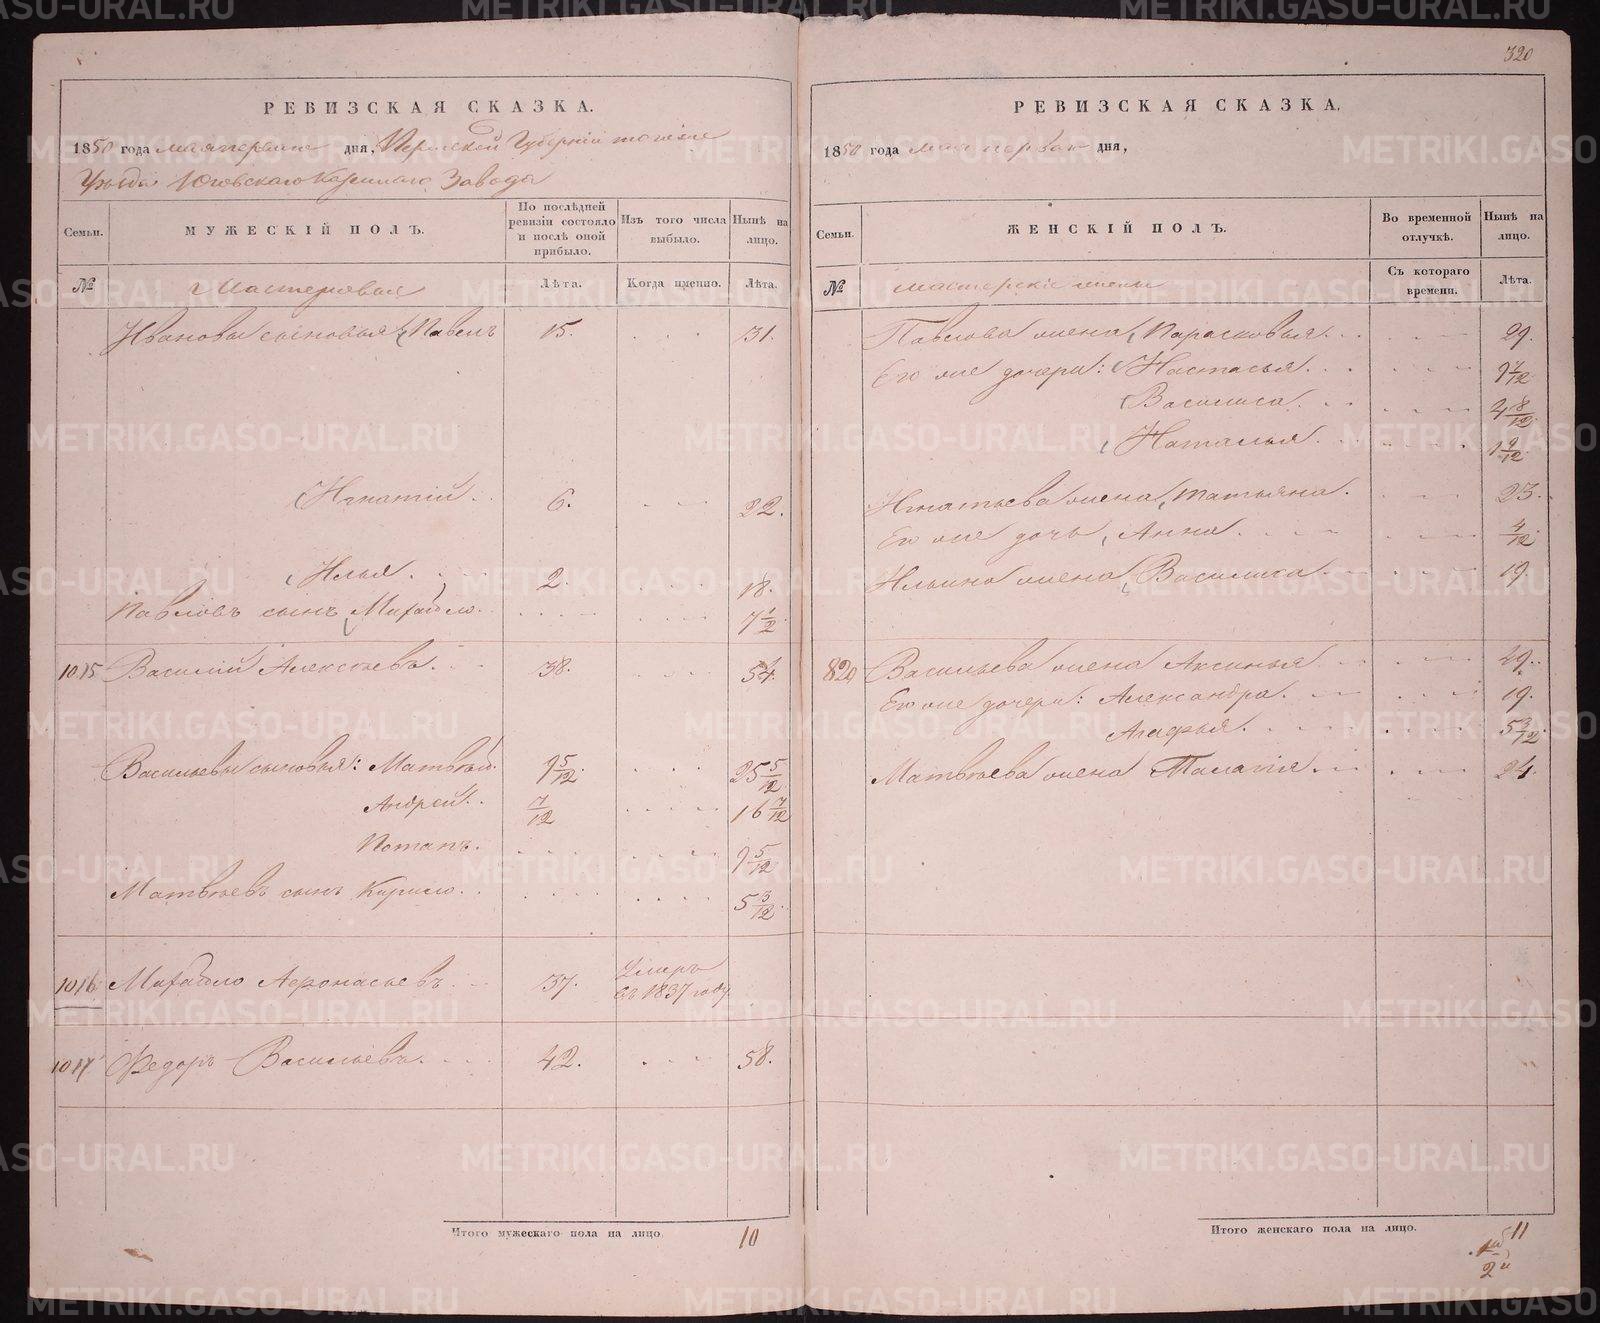 320
РЕВИЗСКАЯ СКАЗКА.
1850 года мая перваго дня, Пермской Губернии того же
Уѣзда Юговскаго Казеннаго Завода
Семьи. МУЖЕСКІЙ ПОЛЪ. По послѣдней ревизіи состояло и послѣ оной прибыло. Изъ того числа выбыло. Нынѣ на лицо.
№ Мастеровые Лѣта. Когда именно. Лѣта.
Ивановы сыновья Павелъ 15. 31.
Игнатій 6. 22.
Илья 2. 18.
Павловъ сынъ Михайло 7 1/2
1015 Василій Алексѣевъ 38. 54.
Васильевы сыновья: Матвѣй 9 5/12 25 5/12
Андрей 7/12 16 7/12
Потапъ 9 5/12
Матвѣевъ сынъ Кирило 5 3/12
1016 Михайло Афонасьевъ 37. Умеръ въ 1837 году
1017 Федоръ Васильевъ 42. 58.
Итого мужескаго пола на лицо 10
РЕВИЗСКАЯ СКАЗКА.
1850 года мая перваго дня,
Семьи. ЖЕНСКІЙ ПОЛЪ. Во временной отлучкѣ. Нынѣ на лицо.
№ мастерскіе жены Съ котораго времени. Лѣта.
Павлова жена Парасковья 29.
Его же дочери: Настасья 9 7/12
Василиса 4 8/12
Наталья 1 9/12
Игнатьева жена Татьяна 23.
Его же дочь Анна 4/12
Ильина жена Василиса 19.
820 Васильева жена Аксинья 49.
Его же дочери: Александра 19.
Агафья 5 3/12
Матвѣева жена Палагія 24.
Итого женскаго пола на лицо. 11
METRIKI.GASO-URAL.RU